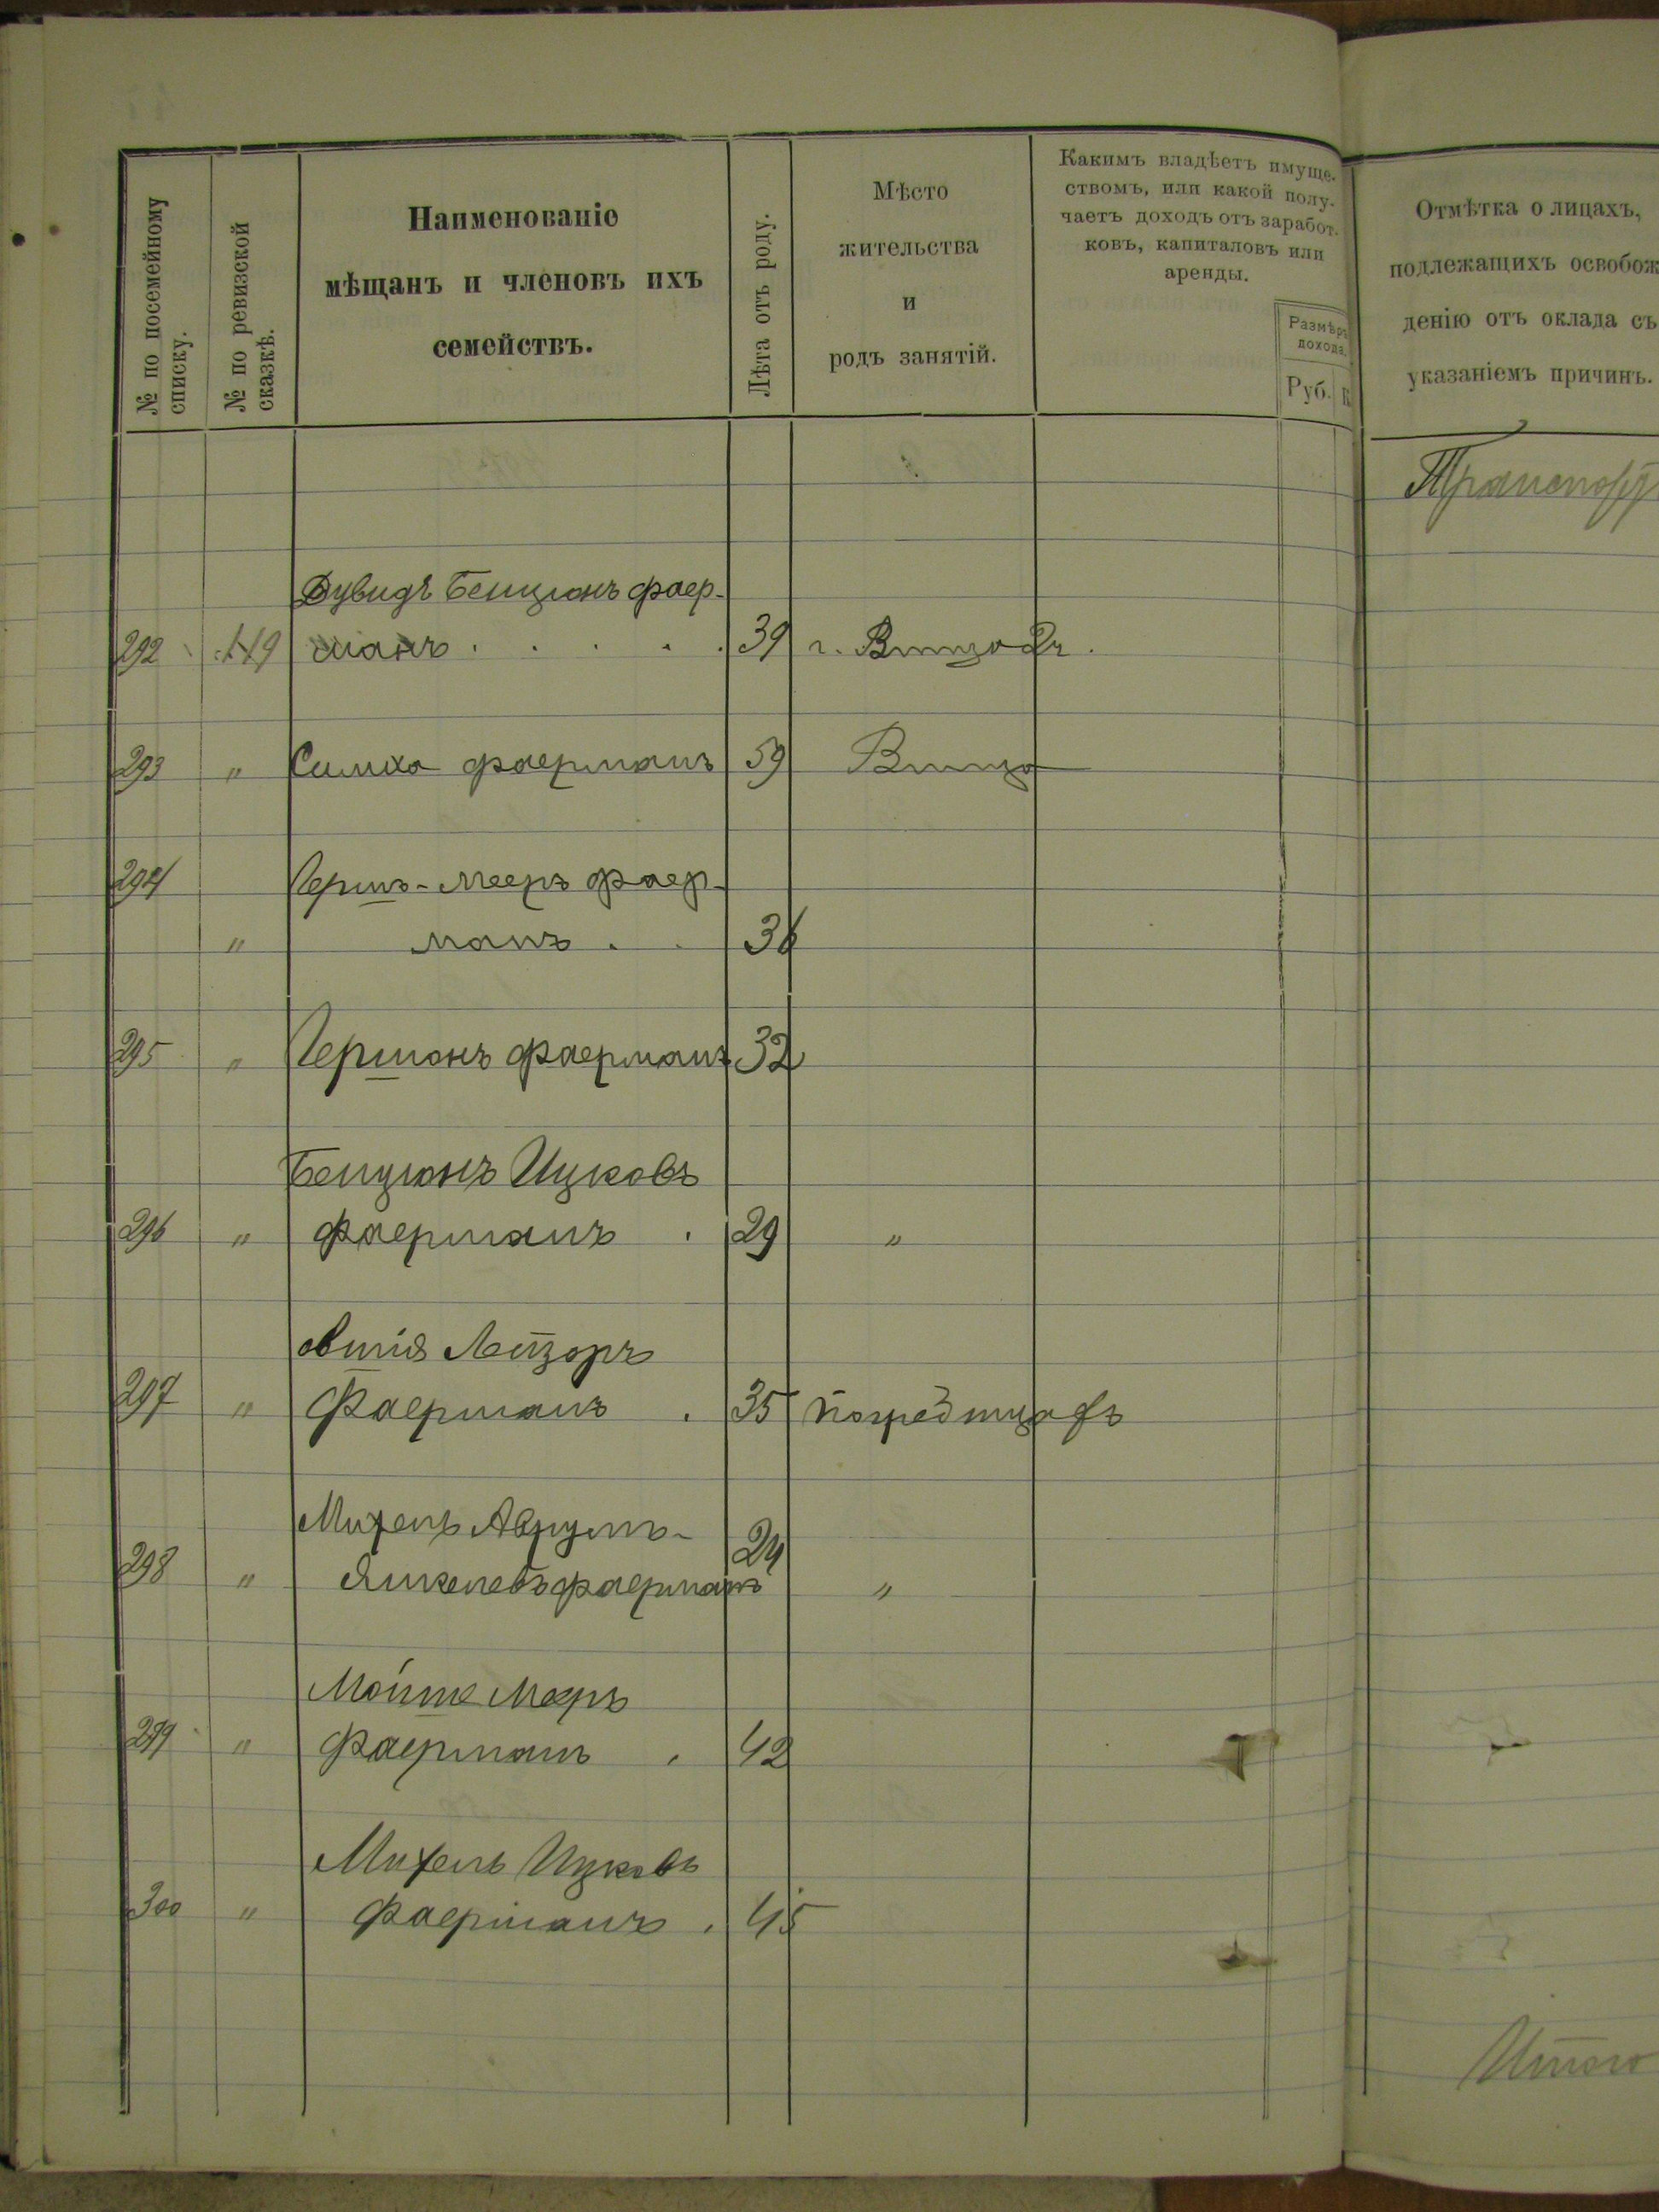 № по посемейному списку.
№ по ревизской сказкѣ.
Наименованіе
мѣщанъ и членовъ ихъ
семействъ.
Лѣта отъ роду.
Мѣсто
жительства
и
родъ занятій.
Какимъ владѣетъ имуще-
ствомъ, или какой полу-
чаетъ доходъ отъ заработ-
ковъ, капиталовъ или
аренды.
Размѣръ
дохода.
Руб. К
Отмѣтка о лицахъ,
подлежащихъ освобож
денію отъ оклада съ
указаніемъ причинъ.
Транспорт
Дувидъ Бенціонъ Фаер-
292 119 манъ . . . . . 39 г.
293 " Симха Фаерманъ 59
294 Гершъ-Мееръ Фаер-
" манъ . . 36
295 " Гершонъ Фаерманъ 32
Бенціонъ Ицковъ
296 " Фаерманъ . 29 "
Лейзоръ
297 " Фаерманъ . 35
Михель Аврумъ-
298 " Янкелевъ Фаерманъ 24 "
Мойше Мееръ
299 " Фаерманъ . 42
Михель Ицковъ
300 " Фаерманъ . 45
Итого